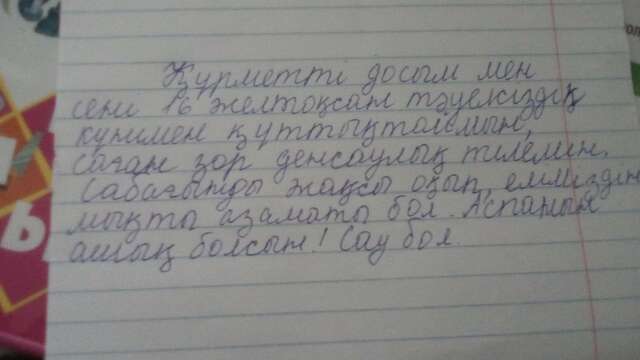 Құрметті досым мен
сени 16 желтоқсан тәуелсіздік
күнимен құттықтаймын,
саған зор денсаулық тілемин.
Сабағынды жақсы оқып, еліміздің
мықты азаматы бол. Аспанын
ашық болсын! Сау бол.